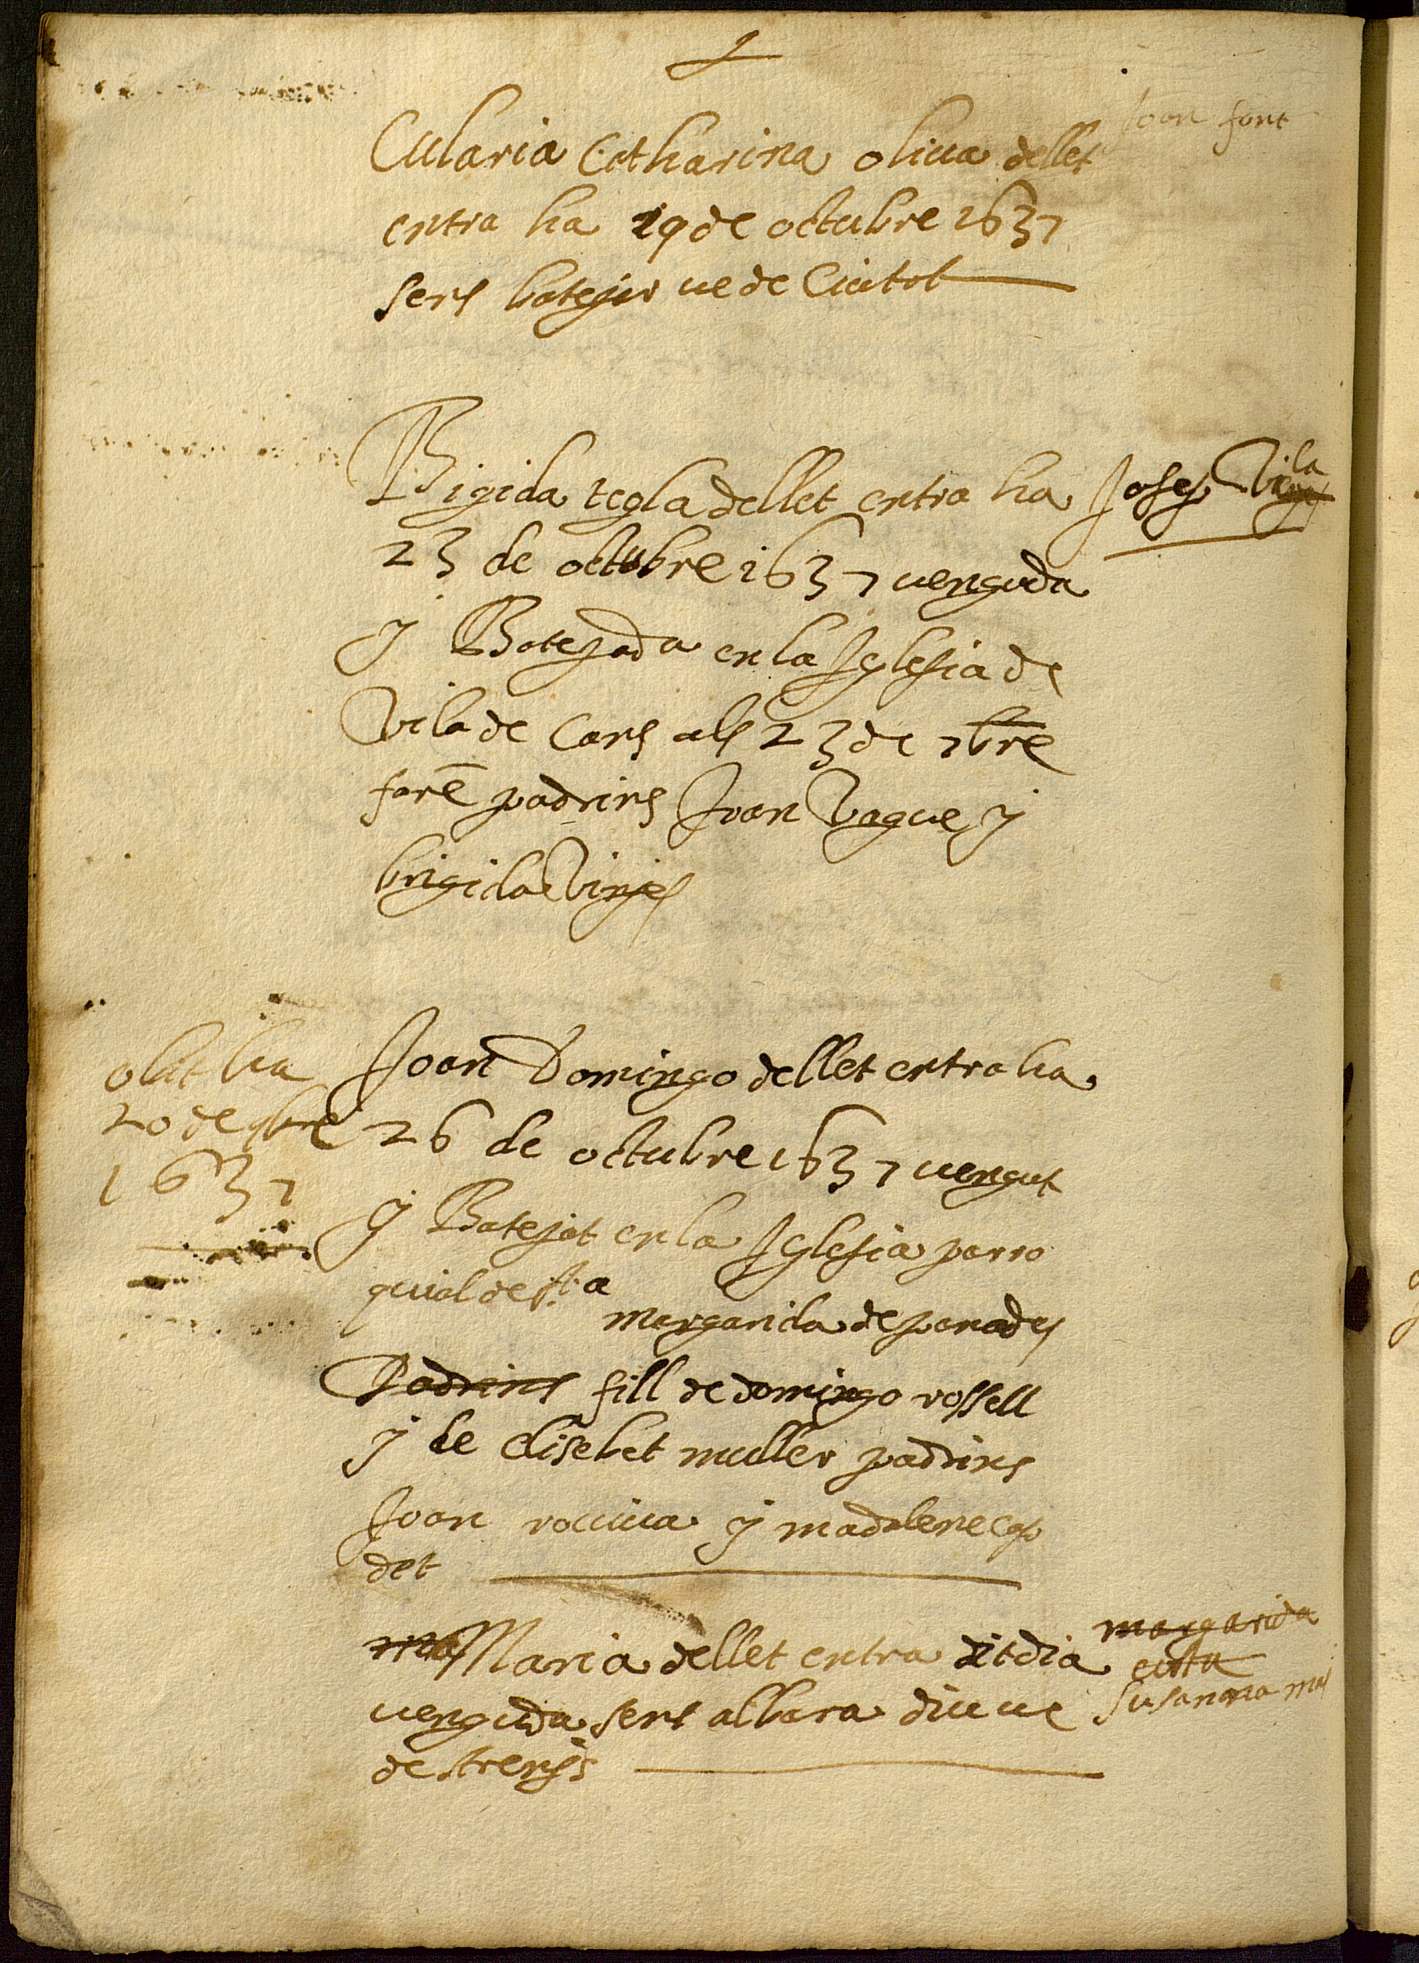 Joan font
Eularia Catharina oliua dellet
entra ha 19 de octubre 1637
sens batejar ue de Ciutat
Brigida tegla dellet entra ha
Josep Vila
23 de octubre 1637 uenguda
y Batejada en la Iglesia de
Vila de Cans als 23 de 7bre
forẽ padrins Joan Vague y
brigida Vinyes
obit ha
20 de 9bre
1637
Joan Domingo dellet entra ha
26 de octubre 1637 uengut
y Batejat en la Iglesia parro
quial de sta
margarida de panades
Padrins fill de domingo rossell
y de elisebet muller padrins
Joan rouira y madalena cap
det
Maria dellet entra dit dia
uenguda sens albara diu ue
de strenys
margarida
susanna mas